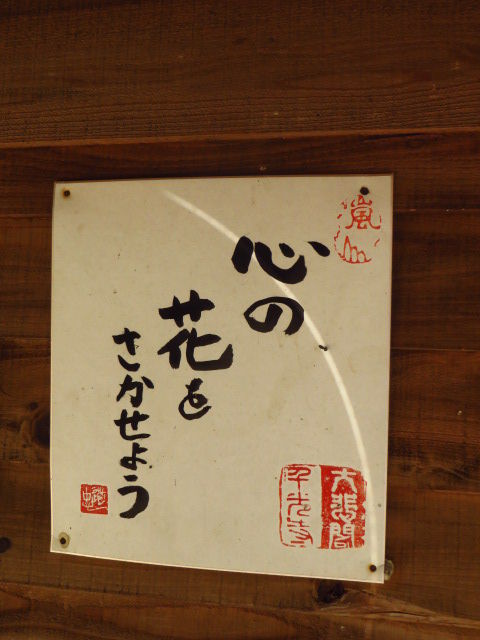 嵐山
心の
花を
さかせよう
大悲閣
千光寺